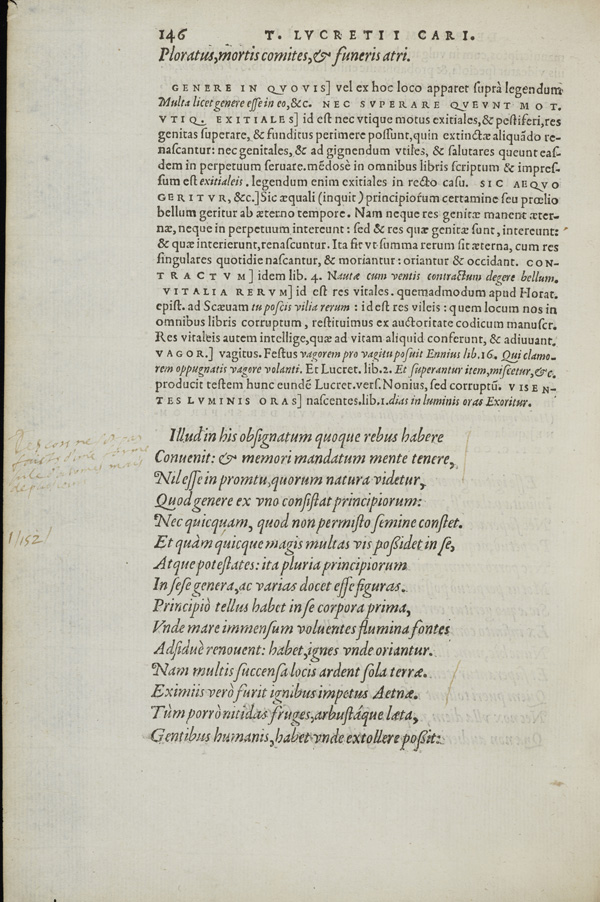 146 T. LVCRETII CARI.
Ploratus, mortis comites, & funeris atri.
GENERE IN QVOVIS] vel ex hoc loco apparet suprà legendum
Multa licet genere esse in eo, &c. NEC SVPERARE QVEVNT MOT.
VTIQ. EXITIALES] id est nec vtique motus exitiales, & pestiferi, res
genitas superare, & funditus perimere possunt, quin extinctæ aliquãdo re-
nascantur: nec genitales, & ad gignendum vtiles, & salutares queunt eas-
dem in perpetuum seruare. mẽdosè in omnibus libris scriptum & impres-
sum est exitialeis. legendum enim exitiales in recto casu. SIC AEQVO
GERITVR, &c.] Sic æquali (inquit) principiorum certamine seu prœlio
bellum geritur ab æterno tempore. Nam neque res genitæ manent æter-
næ, neque in perpetuum intereunt: sed & res quæ genitæ sunt, intereunt:
& quæ interierunt, renascuntur. Ita fit vt summa rerum sit æterna, cum res
singulares quotidie nascantur, & moriantur: oriantur & occidant. CON-
TRACTVM] idem lib. 4. Nautæ cum ventis contractum degere bellum.
VITALIA RERVM] id est res vitales. quemadmodum apud Horat.
epist. ad Scæuam tu poscis vilia rerum: id est res vileis: quem locum nos in
omnibus libris corruptum, restituimus ex auctoritate codicum manuscr.
Res vitaleis autem intellige, quæ ad vitam aliquid conferunt, & adiuuant.
VAGOR.] vagitus. Festus vagorem pro vagitu posuit Ennius lib. 16. Qui clamo-
rem oppugnatis vagore volanti. Et Lucret. lib. 2. Et superantur item, miscetur, &c.
producit testem hunc eundẽ Lucret. vers. Nonius, sed corruptũ. VISEN-
TES LVMINIS ORAS] nascentes. lib. 1. dias in luminis oras Exoritur.
Illud in his obsignatum quoque rebus habere
Conuenit: & memori mandatum mente tenere,
Nil esse in promtu, quorum natura videtur,
Quod genere ex vno consistat principiorum:
Nec quicquam, quod non permisto semine constet.
Et quàm quicque magis multas vis possidet in se,
1/152/
Atque potestates: ita pluria principiorum
In sese genera, ac varias docet esse figuras.
Principiò tellus habet in se corpora prima,
Vnde mare immensum voluentes flumina fontes
Adsiduè renouent: habet, ignes vnde oriantur.
Nam multis succensa locis ardent sola terræ.
Eximiis verò furit ignibus impetus Aetnæ.
Tùm porrò nitidas fruges, arbustáque læta,
Gentibus humanis, habet vnde extollere possit: